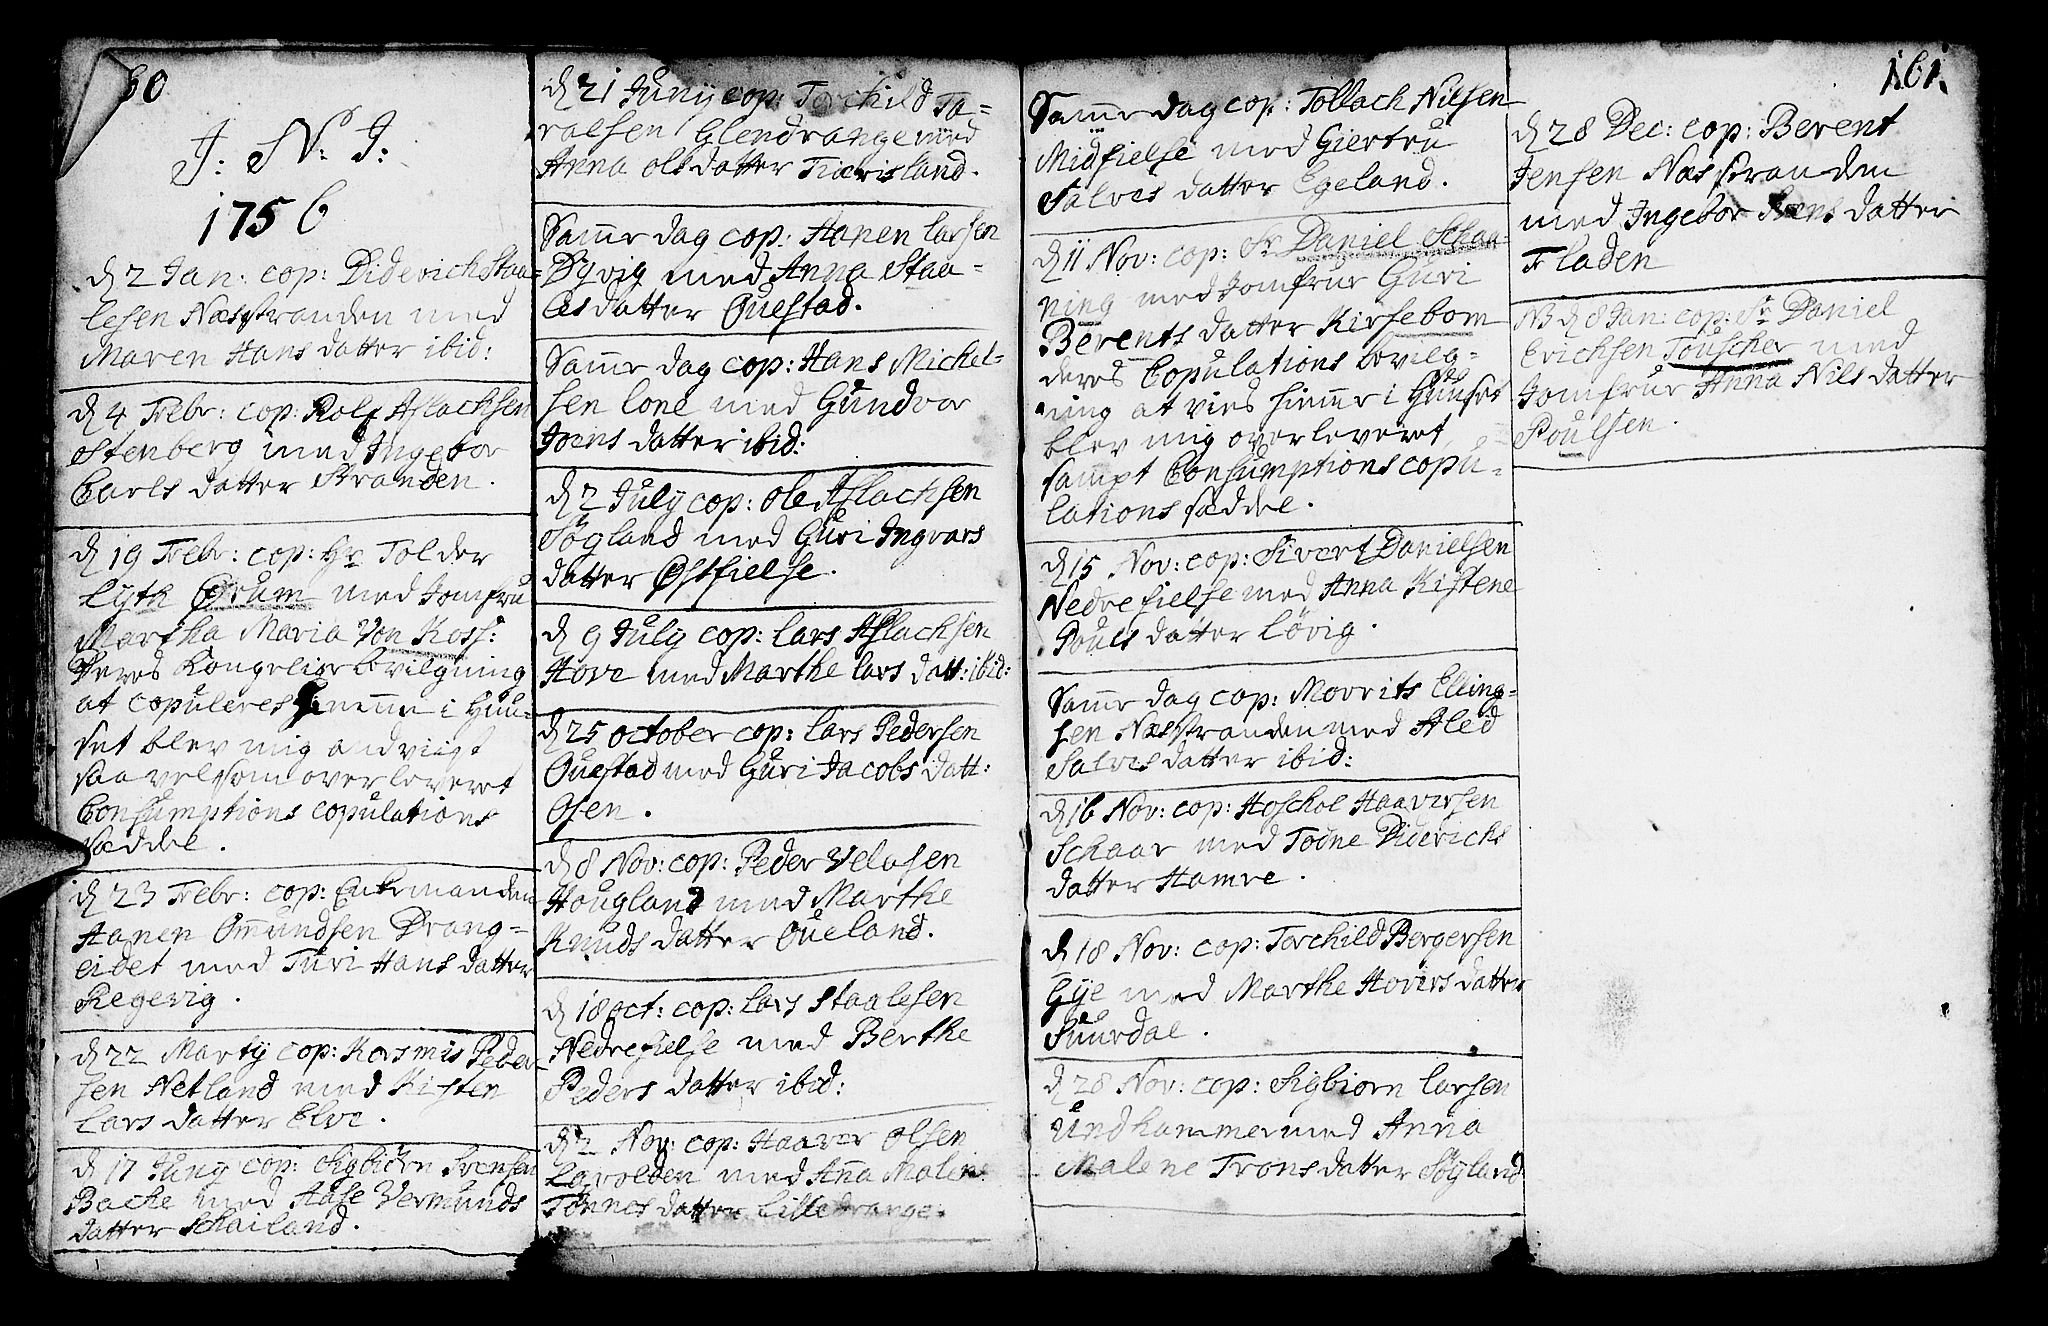 60
J: N: J:
1756
d 2 Jan: cop: Diderich Staa-
lesen Næsstranden med
Maren Hans datter ibid:
d 4 Febr: cop: Rolf Aslachsen
Stenberg med Ingebor
Carls datter Stranden.
d 19 Febr: cop: Hr Tolder
Lyth Grum med Jomfru
Martha Maria Von Koss:
Deres Kongelige bevilgning
at copuleres hiemme i Huu-
set blev mig andviist
saa vel som overleveret
Consumptions copulations
sæddel.
d 23 Febr: cop: Enkemanden
Hanen Omundsen Drang-
eidet med Turi Hans datter
Regevig.
d 22 Martij cop: Kosmis Peder-
sen Netland med Kisten
Lars datter Elve.
d 17 Juny cop: Sigbiörn Svensen
Backe med Aase Vermunds
datter Schailand.
d 21 Junij cop: Torchild Ta-
ralsen Glendrange med
Anna Ols datter Tiørisland.
Samme dag cop: Hanen Larsen
Dyvig med Anna Staa-
les datter Questad.
Samme dag cop: Hans Michel-
sen Lone med Gundvor
Joens datter ibid:
d 2 July cop: Ole Aslachsen
Søgland med Guri Ingvars
datter Østfielse.
d 9 July cop: Lars Aslachsen
Hove med Marthe Lars datt: ibid:
d 25 October cop: Lars Pedersen
Questad med Guri Jacobs datt:
Osen.
d 8 Nov: cop: Peder Velosen
Hougland med Marthe
Knuds datter Oueland.
d 18 oct: cop: Lars Staalesen
Nedrefielse med Berthe
Peders datter ibid:
d 2 Nov: cop: Haaver Olsen
med Anna Malene
Tønnes datter Lilledrange.
161.
Samme dag cop: Tollach Nilsen
Midfielse med Giertru
Salves datter Egeland.
d 11 Nov: cop: Sr Daniel Schaa-
ning med Jomfrue Guri
Berents datter Kirsebom
deres Copulations bevilg-
ning at vies hiemme i Huuset
blev mig overleveret
sampt Consumptions copu-
lations sæddel.
d 15 Nov: cop: Sivert Danielsen
Nedrefielse med Anna Kistene
Pouls datter Lövig.
Samme dag cop: Morrits Elling-
sen Næsstranden med Aled
Salves datter ibid:
d 16 Nov: cop: Hoschol Haaversen
Schaar med Todne Diderichs
datter Hamre.
d 18 Nov: cop: Torchild Bergersen
Gye med Marthe Hovers datter
Suurdal.
d 28 Nov: cop: Sigbiorn Larsen
Undhammer med Anna
Malene Trons datter Søyland
d 28 Dec: cop: Berent
Jensen Næsstranden
med Ingebor Svens datter
Fladen
NB d 8 Jan: cop: Sr Daniel
Erichsen Touscher med
Jomfrue Anna Nils datter
Poulsen.